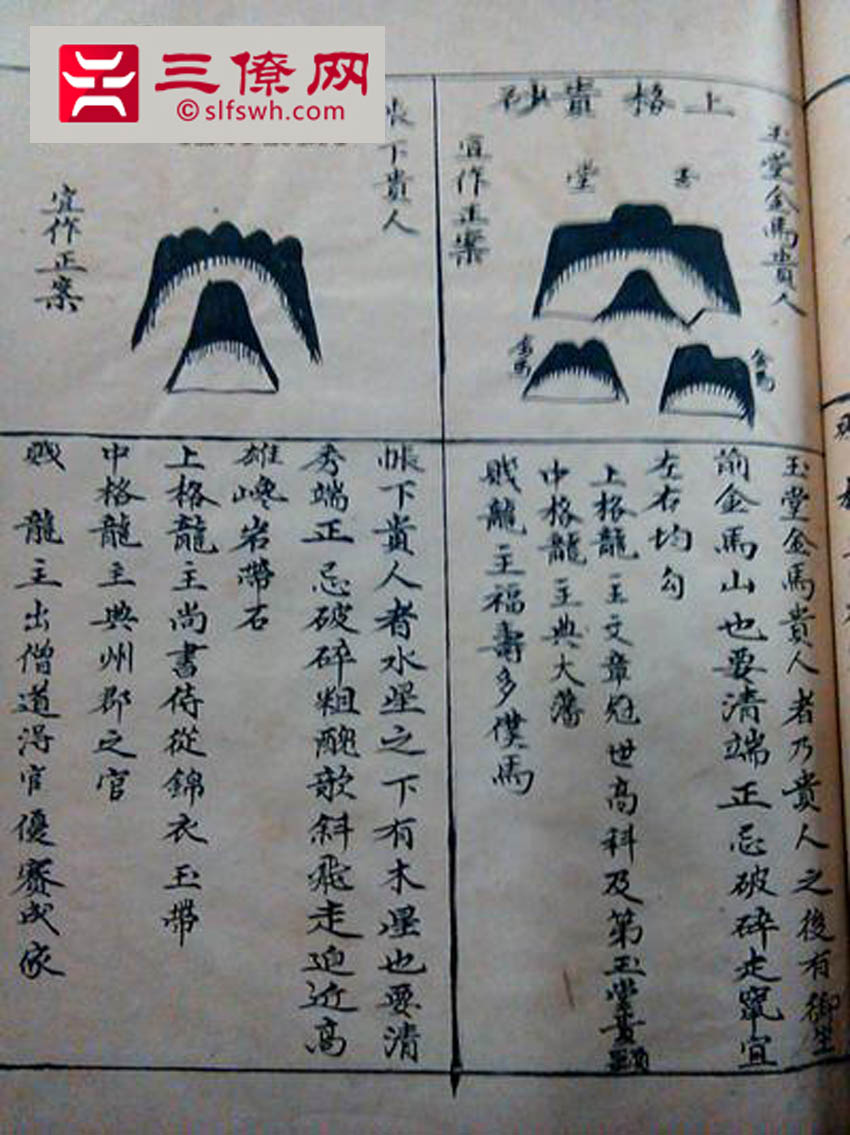 三僚网
©slfswh.com
上格貴砂
玉堂金馬貴人
玉堂
宜作正案
金馬
金馬
玉堂金馬貴人者乃貴人之後有御坐
前金馬山也要清端正忌破碎走竄宜
左右均勻
上格龍主文章冠世高科及第玉堂貴顯
中格龍主典大藩
賎龍主福壽多僕馬
帳下貴人
宜作正案
帳下貴人者水星之下有木星也要清
秀端正忌破碎粗醜欹斜飛走迫近高
雄巉岩帶石
上格龍主尚書侍從錦衣玉帶
中格龍主典州郡之官
賎龍主出僧道得官優賽成家